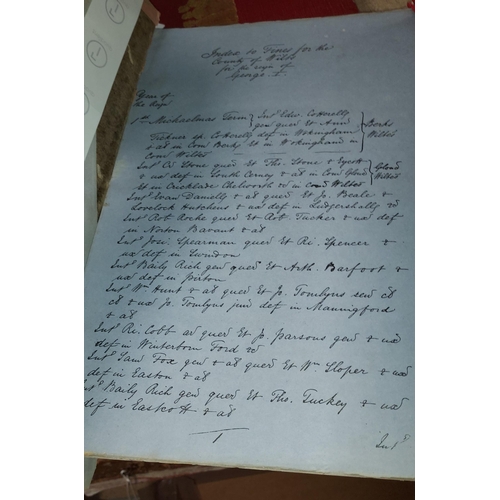 Index to Fines for the
County of Wilts
for the reign of
George I.
Year of
the Reign
1st Michaelmas Term { Intr Edw. Cotterell
gen quer et Ann } Berks
Tickner sp. Cotterell def in Wokingham } Wilts
& als in Com Berks et in Wokingham in
Com Wilts
Intr Ol Stone quer et Tho. Stone & Eycott } Glouc
& ux def in South Cerney & als in Com Glouc } Wilts
et in Cricklade Chelworth &c in Com Wilts
Intr Evan Danielly & als quer et Jo. Beale &
Lovelock Hutchens & ux def in Ludgershally &c
Intr Rob Roche quer et Rob. Tucker & ux def
in Norton Bavant & als
Intr Josi. Spearman quer et Ri. Spencer &
ux def in Swindon
Intr Baily Rich gen quer et Arth. Barfoot &
ux def in purton
Intr Wm Hunt & als quer et Jo. Tomlyns sen
& ux Jo. Tomlyns jun def in Manningford
& als
Intr Ri. Cobb ar quer et Jo. parsons gen & ux
def in Winterborn Ford &c
Intr Sam Fox gen & als quer et Wm Sloper & ux
def in Easton & als
Intr Baily Rich gen quer et Tho. Tuckey & ux
def in Eastcott & als
1
Intr